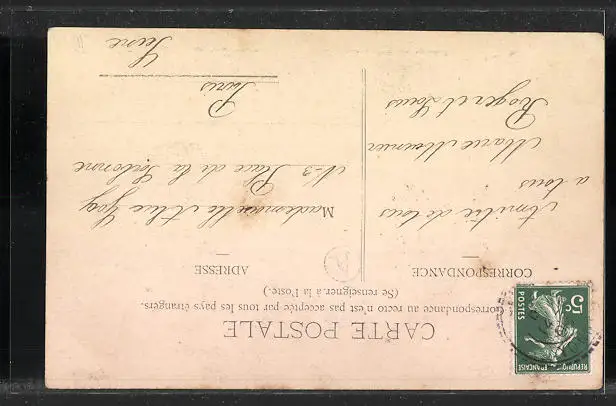 CARTE POSTALE
Correspondance au recto n'est pas acceptée par tous les pays étrangers.
(Se renseigner à la Poste.)
CORRESPONDANCE
Amitié de tous
a tous
Marie Meunier
Roger et Louis
ADRESSE
Mademoiselle Alice
N-3 Place de la Sorbonne
Paris
Seine
RÉPUBLIQUE FRANÇAISE
5c
POSTES